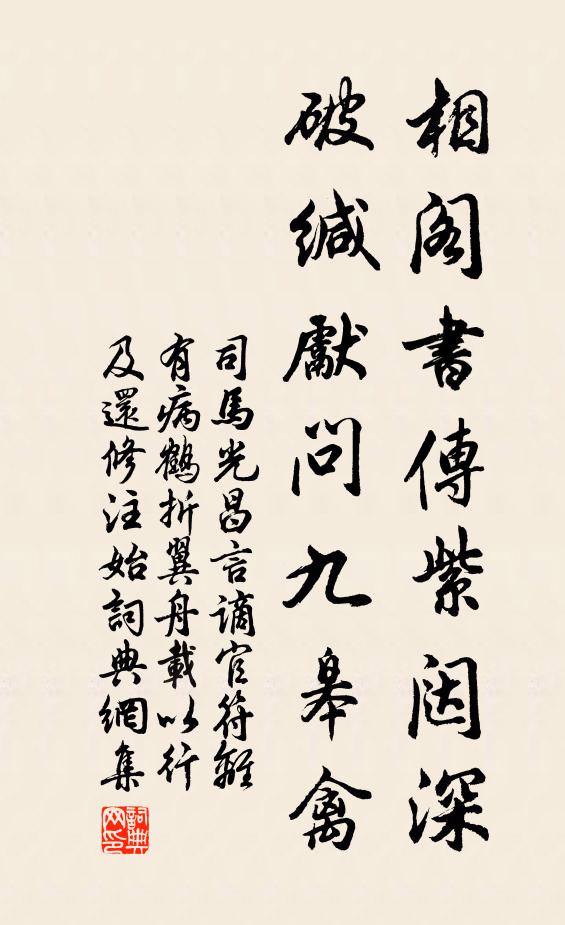 相阁書傳紫闼深
破缄獻問九皋禽
司馬光昌言谪官符離
有病鶴折翼舟載以行
及還修注始詞典網集
詞典
网印